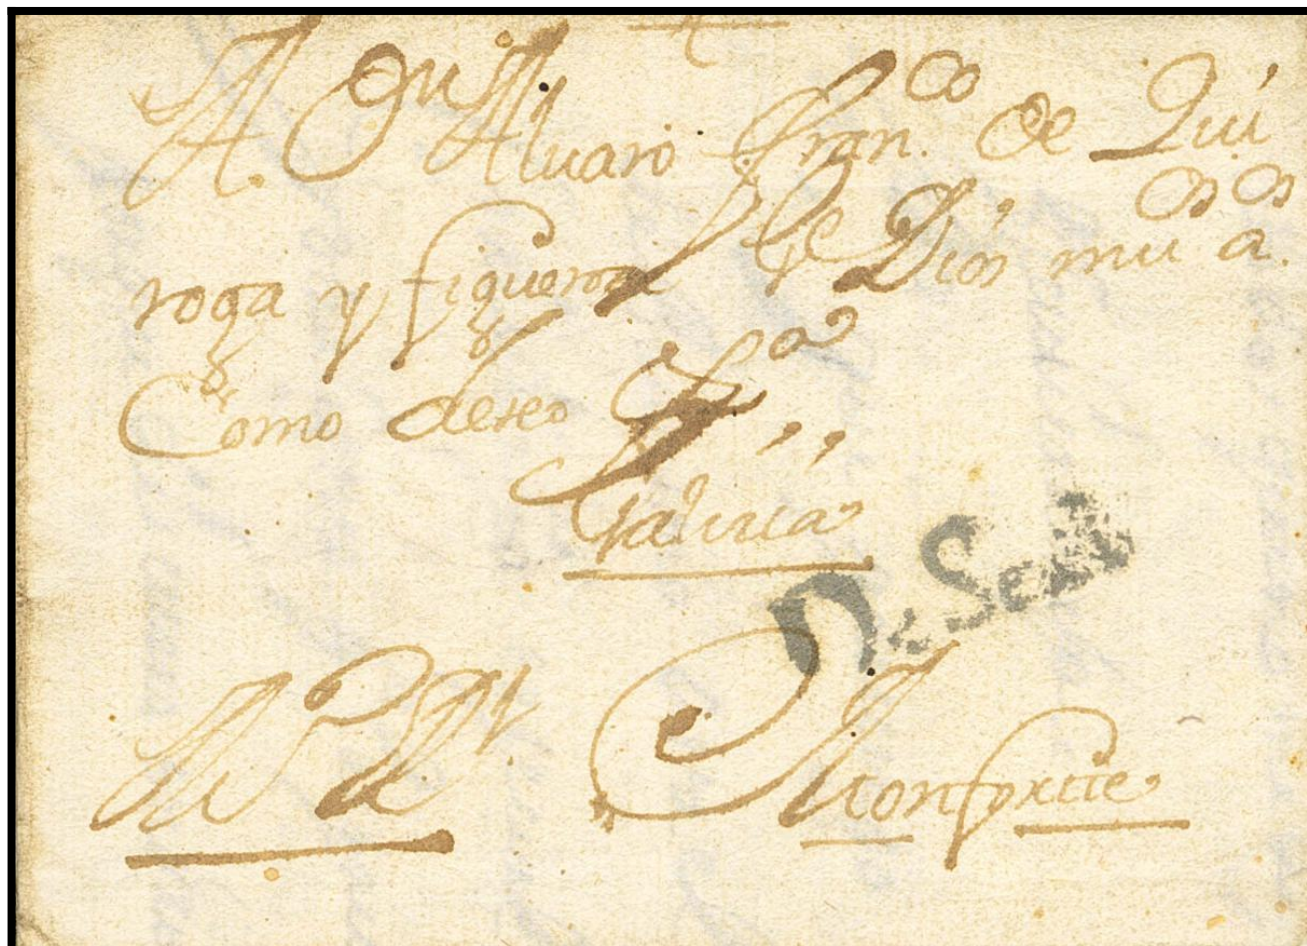 A Dn Alvaro Franco de Qui
roga y figueroa ge Dios mus as
Como deseo
Galicia
De Sevi
Monforte